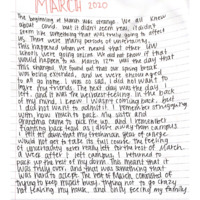 MARCH 2020
The beginning of March was strange. We all knew
about covid, but it didn't seem real. It didn't
seem like something that was truly going to affect
us. There were many periods of uncertainty.
This happened when we heard that other
schools were going online. We did not know if that
would happen to us. March 12th was the day that
this changed. We found out that our spring break
was being extended, and we were encouraged
to all go home. I was so sad, I did not want to
leave my friends. The next day was the day I
left, and it was the weirdest feeling. In the back
of my mind, I knew I wasn't coming back, but
I did not want to admit it. I remember struggling
with how much to pack. My sister and
grandma came to pick me up, and I remember
fighting back tears as I drove away from campus.
I felt let down that my freshman year of college
would not get to take its full course. The feeling
of uncertainty never really left for the rest of March.
A week after I left campus, I returned to
pick up the rest of my dorm. This meant that it
was truly over, and that was something that
was hard to accept. The rest of March consisted of
trying to keep myself busy, trying not to go crazy
not leaving my house, and only seeing my family.